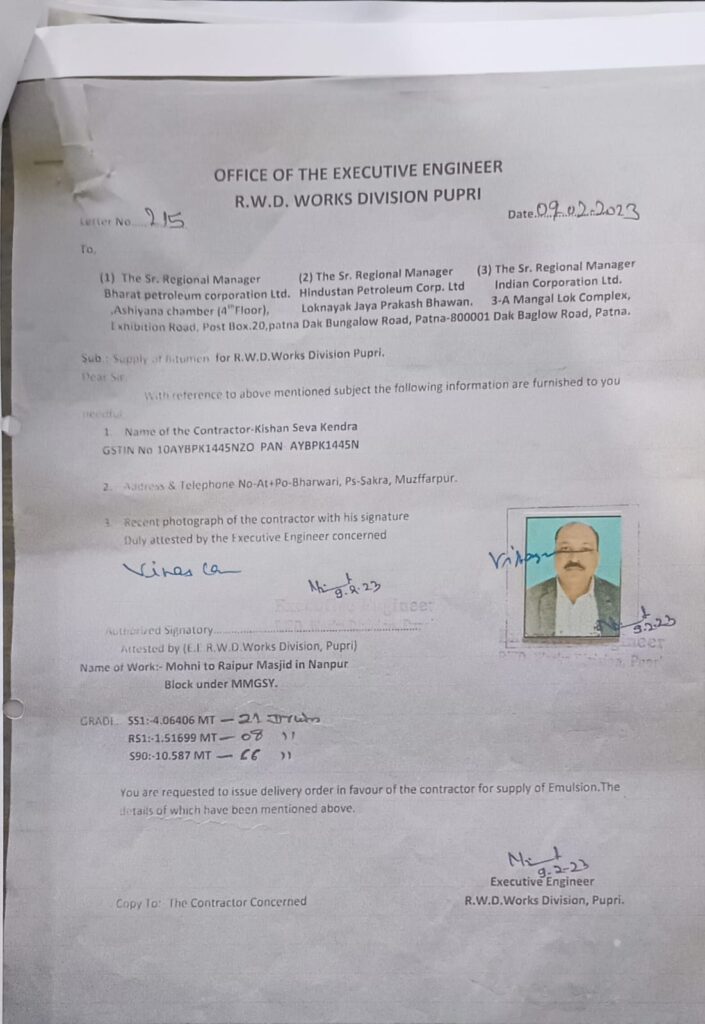 OFFICE OF THE EXECUTIVE ENGINEER
R.W.D. WORKS DIVISION PUPRI
Letter No.....215
Date.09.02.2023
To,
(1) The Sr. Regional Manager
Bharat petroleum corporation Ltd.
,Ashiyana chamber (4thFloor),
Exhibition Road, Post Box.20,patna
(2) The Sr. Regional Manager
Hindustan Petroleum Corp. Ltd
Loknayak Jaya Prakash Bhawan.
Dak Bungalow Road, Patna-800001
(3) The Sr. Regional Manager
Indian Corporation Ltd.
3-A Mangal Lok Complex,
Dak Baglow Road, Patna.
Sub : Supply of Bitumen for R.W.D.Works Division Pupri.
Dear Sir,
With reference to above mentioned subject the following information are furnished to you
needful.
1. Name of the Contractor-Kishan Seva Kendra
GSTIN No 10AYBPK1445NZO PAN AYBPK1445N
2. Address & Telephone No-At+Po-Bharwari, Ps-Sakra, Muzffarpur.
3. Recent photograph of the contractor with his signature
Duly attested by the Executive Engineer concerned
9.2.23
Executive Engineer
9.2.23
Authorized Signatory
Attested by (E.E R.W.D.Works Division, Pupri)
Name of Work:- Mohni to Raipur Masjid in Nanpur
Block under MMGSY.
GRADE. SS1:-4.06406 MT — 21
RS1:-1.51699 MT — 08 ''
S90:-10.587 MT — 66 ''
You are requested to issue delivery order in favour of the contractor for supply of Emulsion.The
details of which have been mentioned above.
9-2-23
Executive Engineer
R.W.D.Works Division, Pupri.
Copy To: The Contractor Concerned